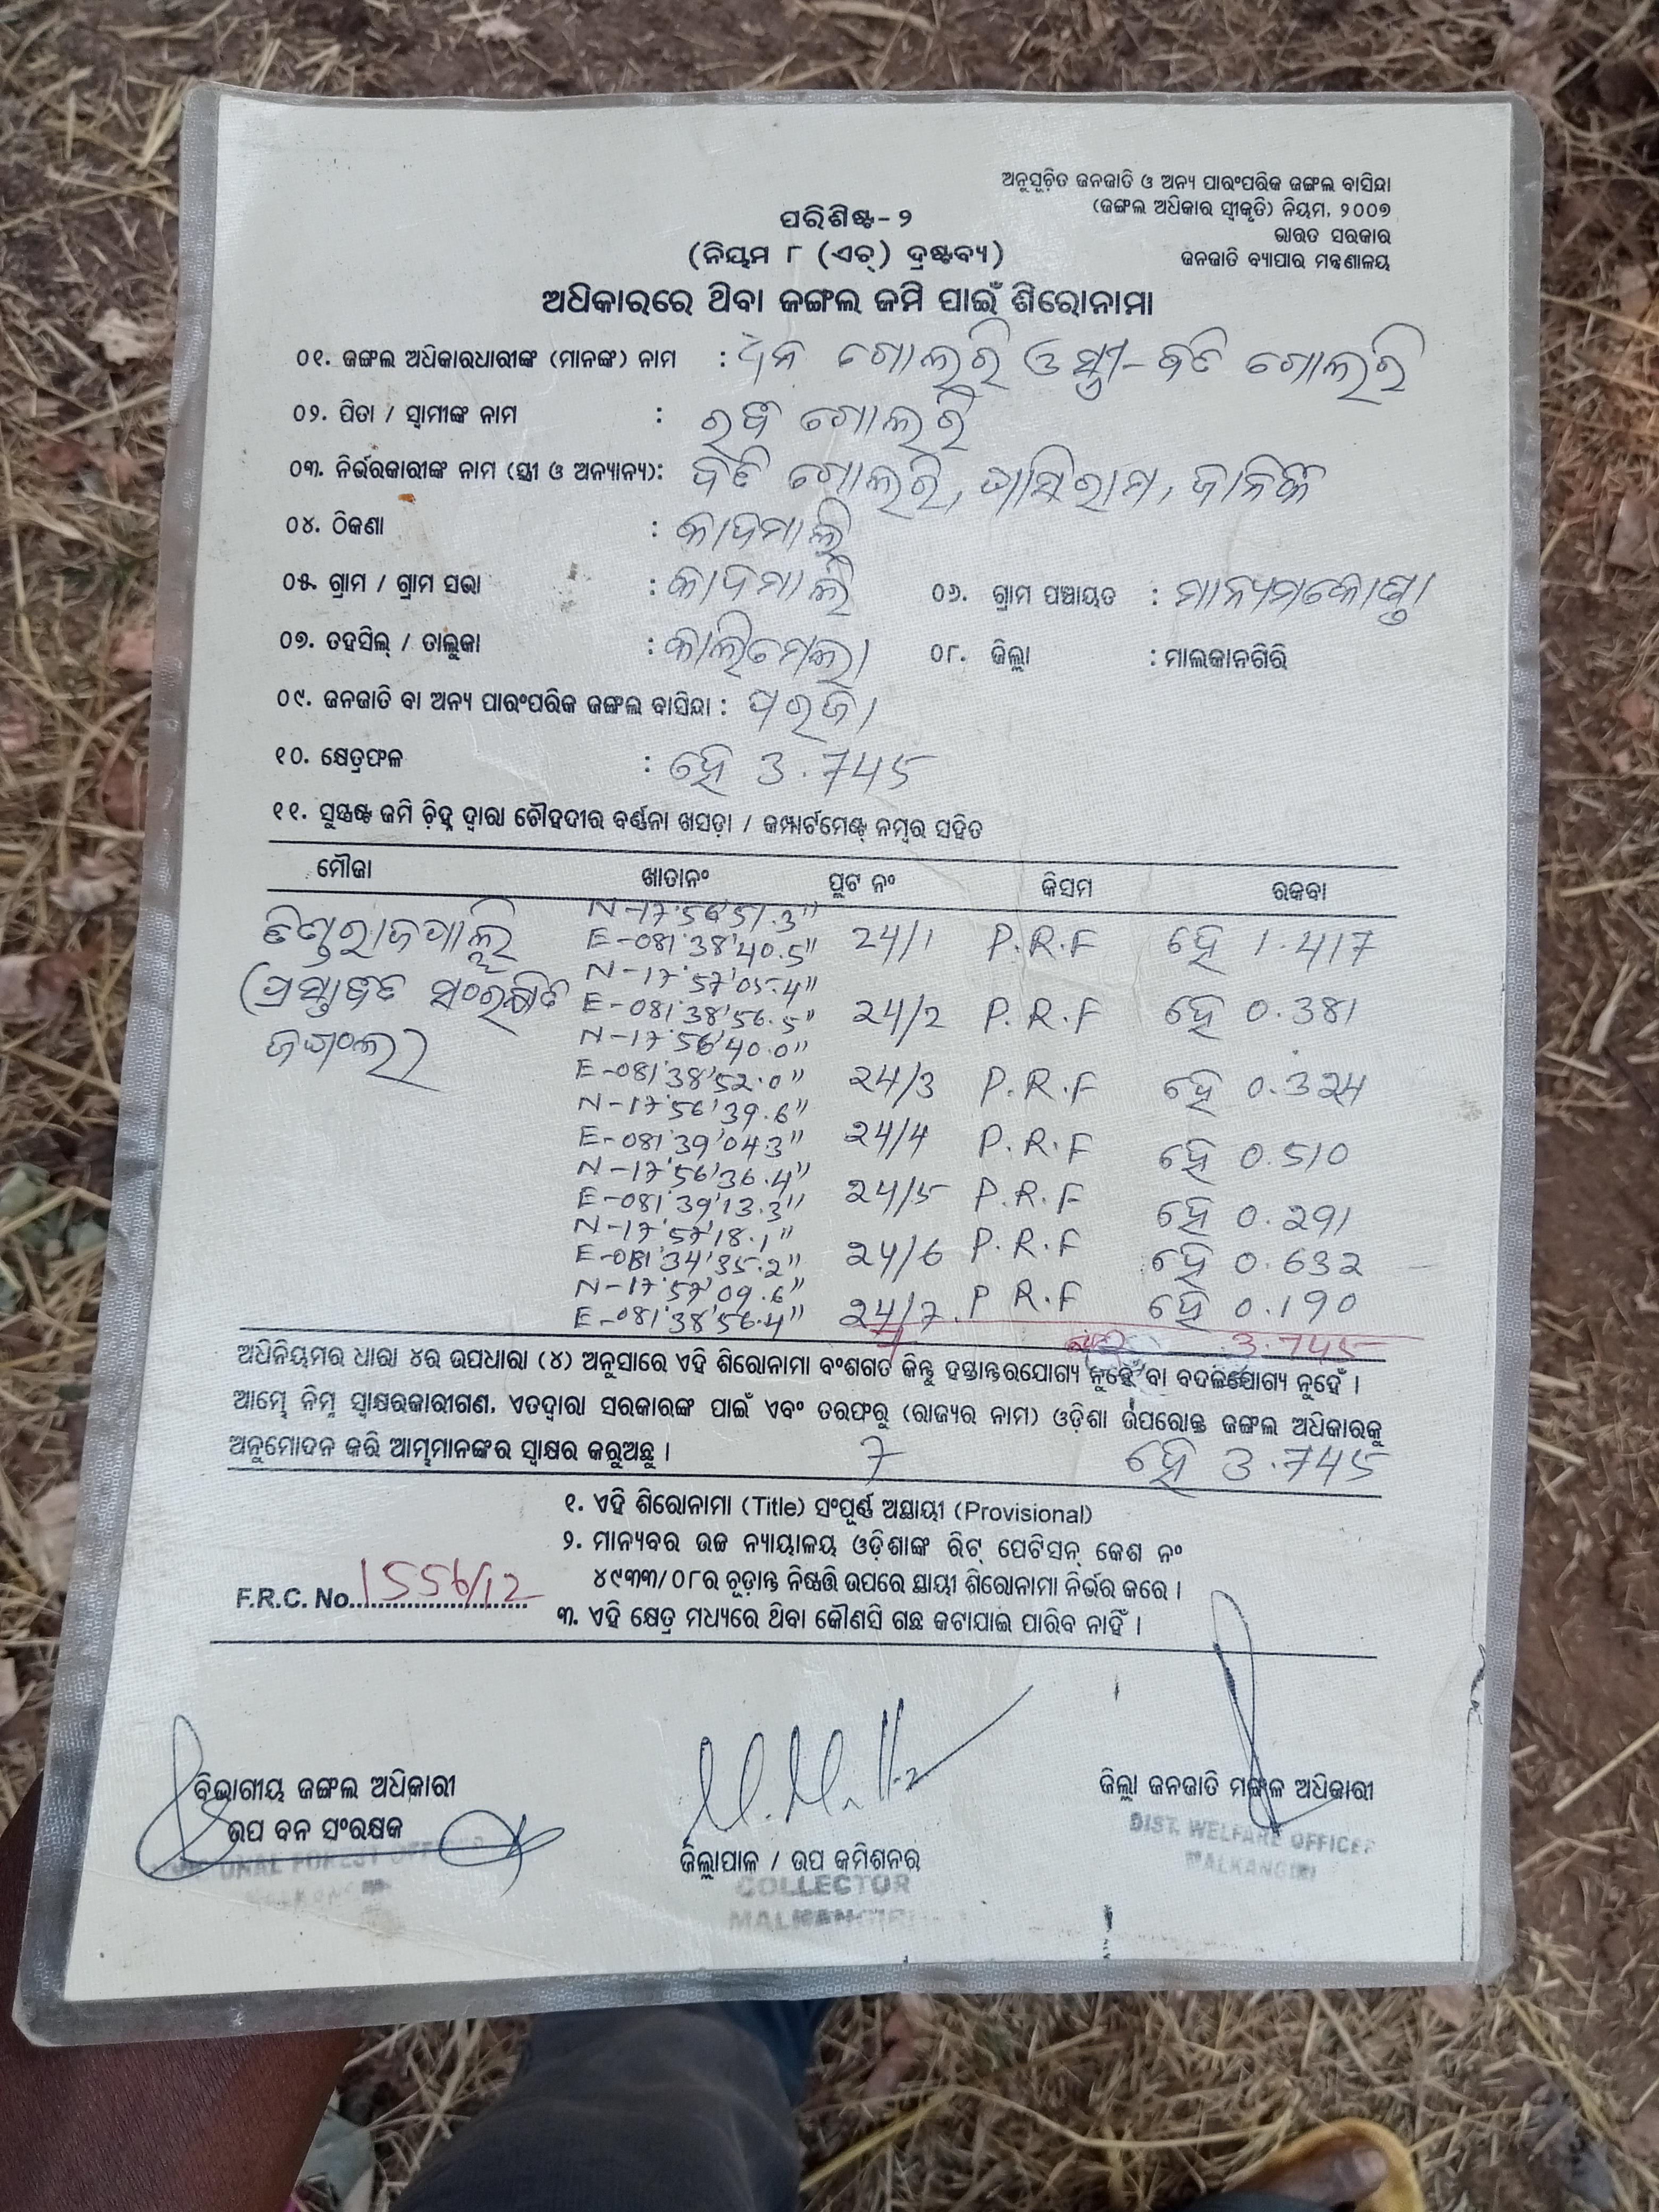 ଅନୁସୂଚିତ ଜନଜାତି ଓ ଅନ୍ୟ ପାରଂପରିକ ଜଙ୍ଗଲ ବାସିନ୍ଦା
(ଜଙ୍ଗଲ ଅଧିକାର ସ୍ୱୀକୃତି) ନିୟମ, ୨୦୦୭
ଭାରତ ସରକାର
ଜନଜାତି ବ୍ୟାପାର ମନ୍ତ୍ରଣାଳୟ
ପରିଶିଷ୍ଟ-୨
(ନିୟମ ୮ (ଏଚ୍) ଦ୍ରଷ୍ଟବ୍ୟ)
ଅଧିକାରରେ ଥିବା ଜଙ୍ଗଲ ଜମି ପାଇଁ ଶିରୋନାମା
୦୧. ଜଙ୍ଗଲ ଅଧିକାରଧାରୀଙ୍କ (ମାନଙ୍କ) ନାମ : ଗୋଲରି ଓ ସ୍ତ୍ରୀ- ଗୋଲରି
୦୨. ପିତା / ସ୍ୱାମୀଙ୍କ ନାମ : ଗୋଲରି
୦୩. ନିର୍ଭରକାରୀଙ୍କ ନାମ (ସ୍ତ୍ରୀ ଓ ଅନ୍ୟାନ୍ୟ): ଗୋଲରି,
୦୪. ଠିକଣା : କାଦମାଲି
୦୫. ଗ୍ରାମ / ଗ୍ରାମ ସଭା : କାଦମାଲି ୦୬. ଗ୍ରାମ ପଞ୍ଚାୟତ : ମାନ୍ୟମକୋଣ୍ଡା
୦୭. ତହସିଲ୍ / ତାଲୁକା : କାଲିମେଲା ୦୮. ଜିଲ୍ଲା : ମାଲକାନଗିରି
୦୯. ଜନଜାତି ବା ଅନ୍ୟ ପାରଂପରିକ ଜଙ୍ଗଲ ବାସିନ୍ଦା : ପରଜା
୧୦. କ୍ଷେତ୍ରଫଳ : ହେ 3.745
୧୧. ସୁସ୍ପଷ୍ଟ ଜମି ଚିହ୍ନ ଦ୍ୱାରା ଚୌହଦୀର ବର୍ଣ୍ଣନା ଖସଡ଼ା / କମ୍ପାର୍ଟମେଣ୍ଟ୍ ନମ୍ବର ସହିତ
ମୌଜା ଖାତାନଂ ପ୍ଲଟ ନଂ କିସମ ରକବା
N-17°56'51.3"
E-081°38'40.5" 24/1 P.R.F ହେ 1.417
N-17°57'05.4"
(ପ୍ରସ୍ତାବିତ ସଂରକ୍ଷିତ E-081°38'56.5" 24/2 P.R.F ହେ 0.381
ଜଙ୍ଗଲ) N-17°56'40.0"
E-081°38'52.0" 24/3 P.R.F ହେ 0.324
N-17°56'39.6"
E-081°39'04.3" 24/4 P.R.F ହେ 0.510
N-17°56'36.4"
E-081°39'13.3" 24/5 P.R.F ହେ 0.291
N-17°57'18.1"
E-081°34'35.2" 24/6 P.R.F ହେ 0.632
N-17°57'09.6"
E-081°38'56.4" 24/7. P R.F ହେ 0.190
3.745
ଅଧିନିୟମର ଧାରା ୪ର ଉପଧାରା (୪) ଅନୁସାରେ ଏହି ଶିରୋନାମା ବଂଶଗତ କିନ୍ତୁ ହସ୍ତାନ୍ତରଯୋଗ୍ୟ ନୁହେଁ ବା ବଦଳିଯୋଗ୍ୟ ନୁହେଁ ।
ଆମ୍ଭେ ନିମ୍ନ ସ୍ୱାକ୍ଷରକାରୀଗଣ, ଏତଦ୍ୱାରା ସରକାରଙ୍କ ପାଇଁ ଏବଂ ତରଫରୁ (ରାଜ୍ୟର ନାମ) ଓଡ଼ିଶା ଉପରୋକ୍ତ ଜଙ୍ଗଲ ଅଧିକାରକୁ
ଅନୁମୋଦନ କରି ଆମ୍ଭମାନଙ୍କର ସ୍ୱାକ୍ଷର କରୁଅଛୁ । 7 ହେ 3.745
୧. ଏହି ଶିରୋନାମା (Title) ସଂପୂର୍ଣ୍ଣ ଅସ୍ଥାୟୀ (Provisional)
୨. ମାନ୍ୟବର ଉଚ୍ଚ ନ୍ୟାୟାଳୟ ଓଡ଼ିଶାଙ୍କ ରିଟ୍ ପେଟିସନ୍ କେଶ ନଂ
୪୯୩୩/୦୮ର ଚୂଡ଼ାନ୍ତ ନିଷ୍ପତ୍ତି ଉପରେ ସ୍ଥାୟୀ ଶିରୋନାମା ନିର୍ଭର କରେ ।
F.R.C. No. 1556/12
୩. ଏହି କ୍ଷେତ୍ର ମଧ୍ୟରେ ଥିବା କୌଣସି ଗଛ କଟାଯାଇ ପାରିବ ନାହିଁ ।
ବିଭାଗୀୟ ଜଙ୍ଗଲ ଅଧିକାରୀ
ଉପ ବନ ସଂରକ୍ଷକ
FOREST OFFICER
ଜିଲ୍ଲାପାଳ / ଉପ କମିଶନର
COLLECTOR
MALKANGIRI
ଜିଲ୍ଲା ଜନଜାତି ମଙ୍ଗଳ ଅଧିକାରୀ
DIST. WELFARE OFFICER
MALKANGIRI